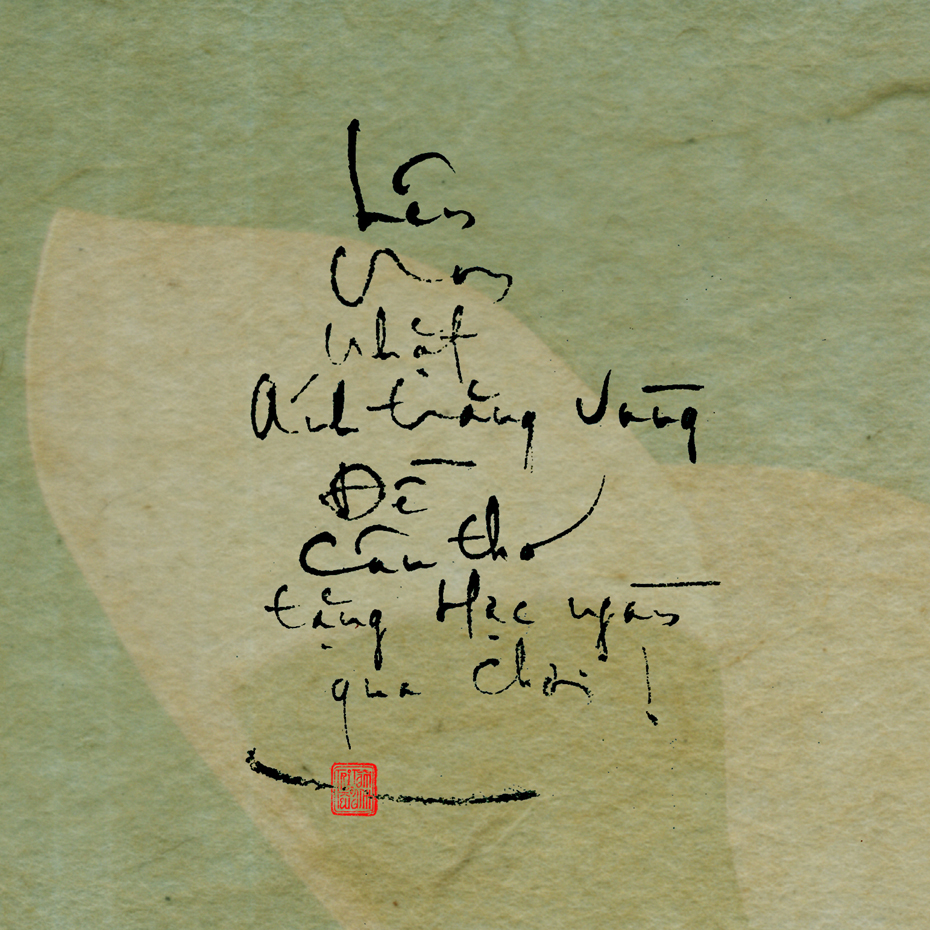 Lên
Non
Nhặt
Ánh trăng vàng
Đề
Câu thơ
tặng Hạc ngàn
qua chơi!